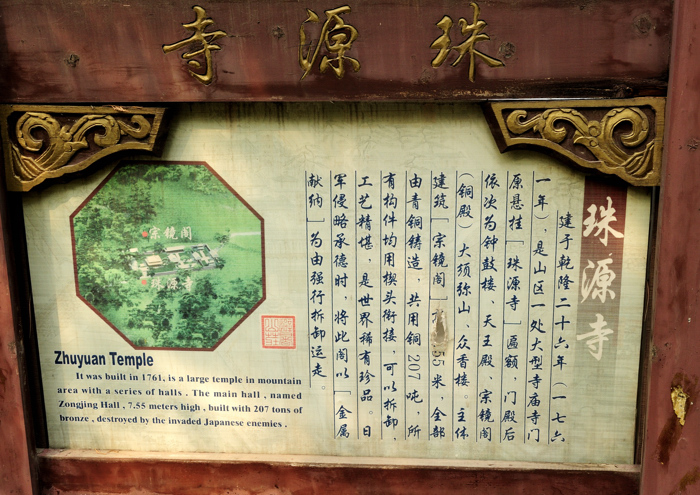 寺源珠
珠源寺
建于乾隆二十六年（一七六
一年），是山区一处大型寺庙寺门
原悬挂［珠源寺］匾额，门殿后
依次为钟鼓楼、天王殿 宗镜阁
（铜殿）大须弥山、众香楼。主体
建筑［宗镜阁］ 55米，全部
由青铜铸造，共用铜207吨，所
有构件均用楔头衔接，可以拆卸，
工艺精堪，是世界稀有珍品。日
军侵略承德时，将此阁以［金属
献纳］为由强行拆卸运走。
宗镜阁
珠源寺
Zhuyuan Temple
It was built in 1761, is a large temple in mountain
area with a series of halls . The main hall , named
Zongjing Hall , 7.55 meters high , built with 207 tons of
bronze , destroyed by the invaded Japanese enemies .